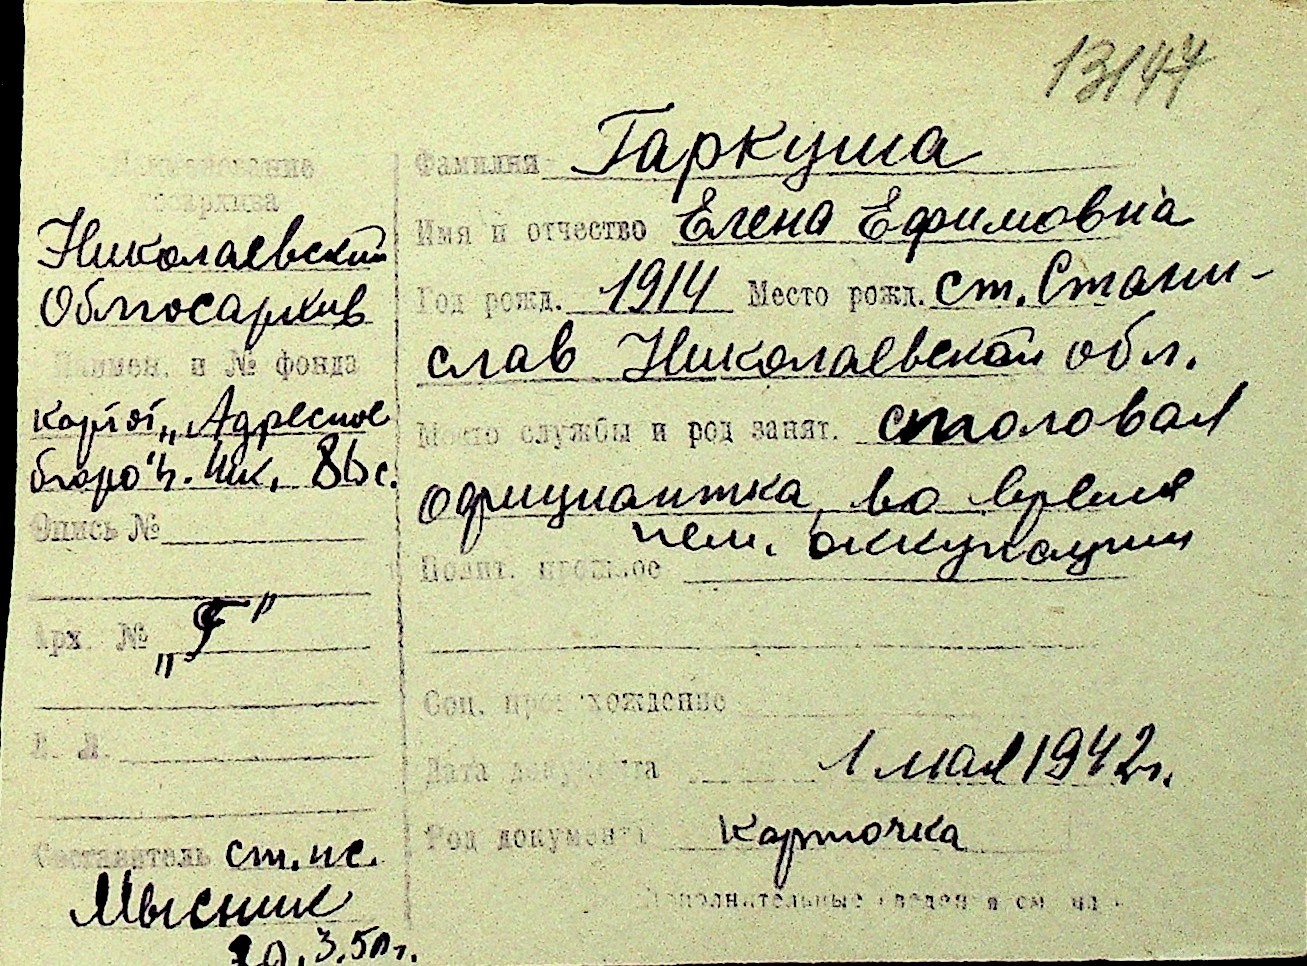 13144
Наименование
госархива
Николаевский
Облгосархив
Наимен. и № фонда
картот. „Адресное
бюро"
Опись №
Арх. № „Г"
Л. Л.
Составитель ст. нс.
Мысник
30.3.50 г.
Фамилия Гаркуша
Имя и отчество Елена Ефимовна
Год рожд. 1914 Место рожд. ст. Стани-
слав Николаевской обл.
Место службы и род занят. столовая
официантка, во время
нем. оккупации
Полит. прошлое
Соц. происхождение
Дата документа 1 мая 1942 г.
Род документа карточка
Дополнительные сведения см. на